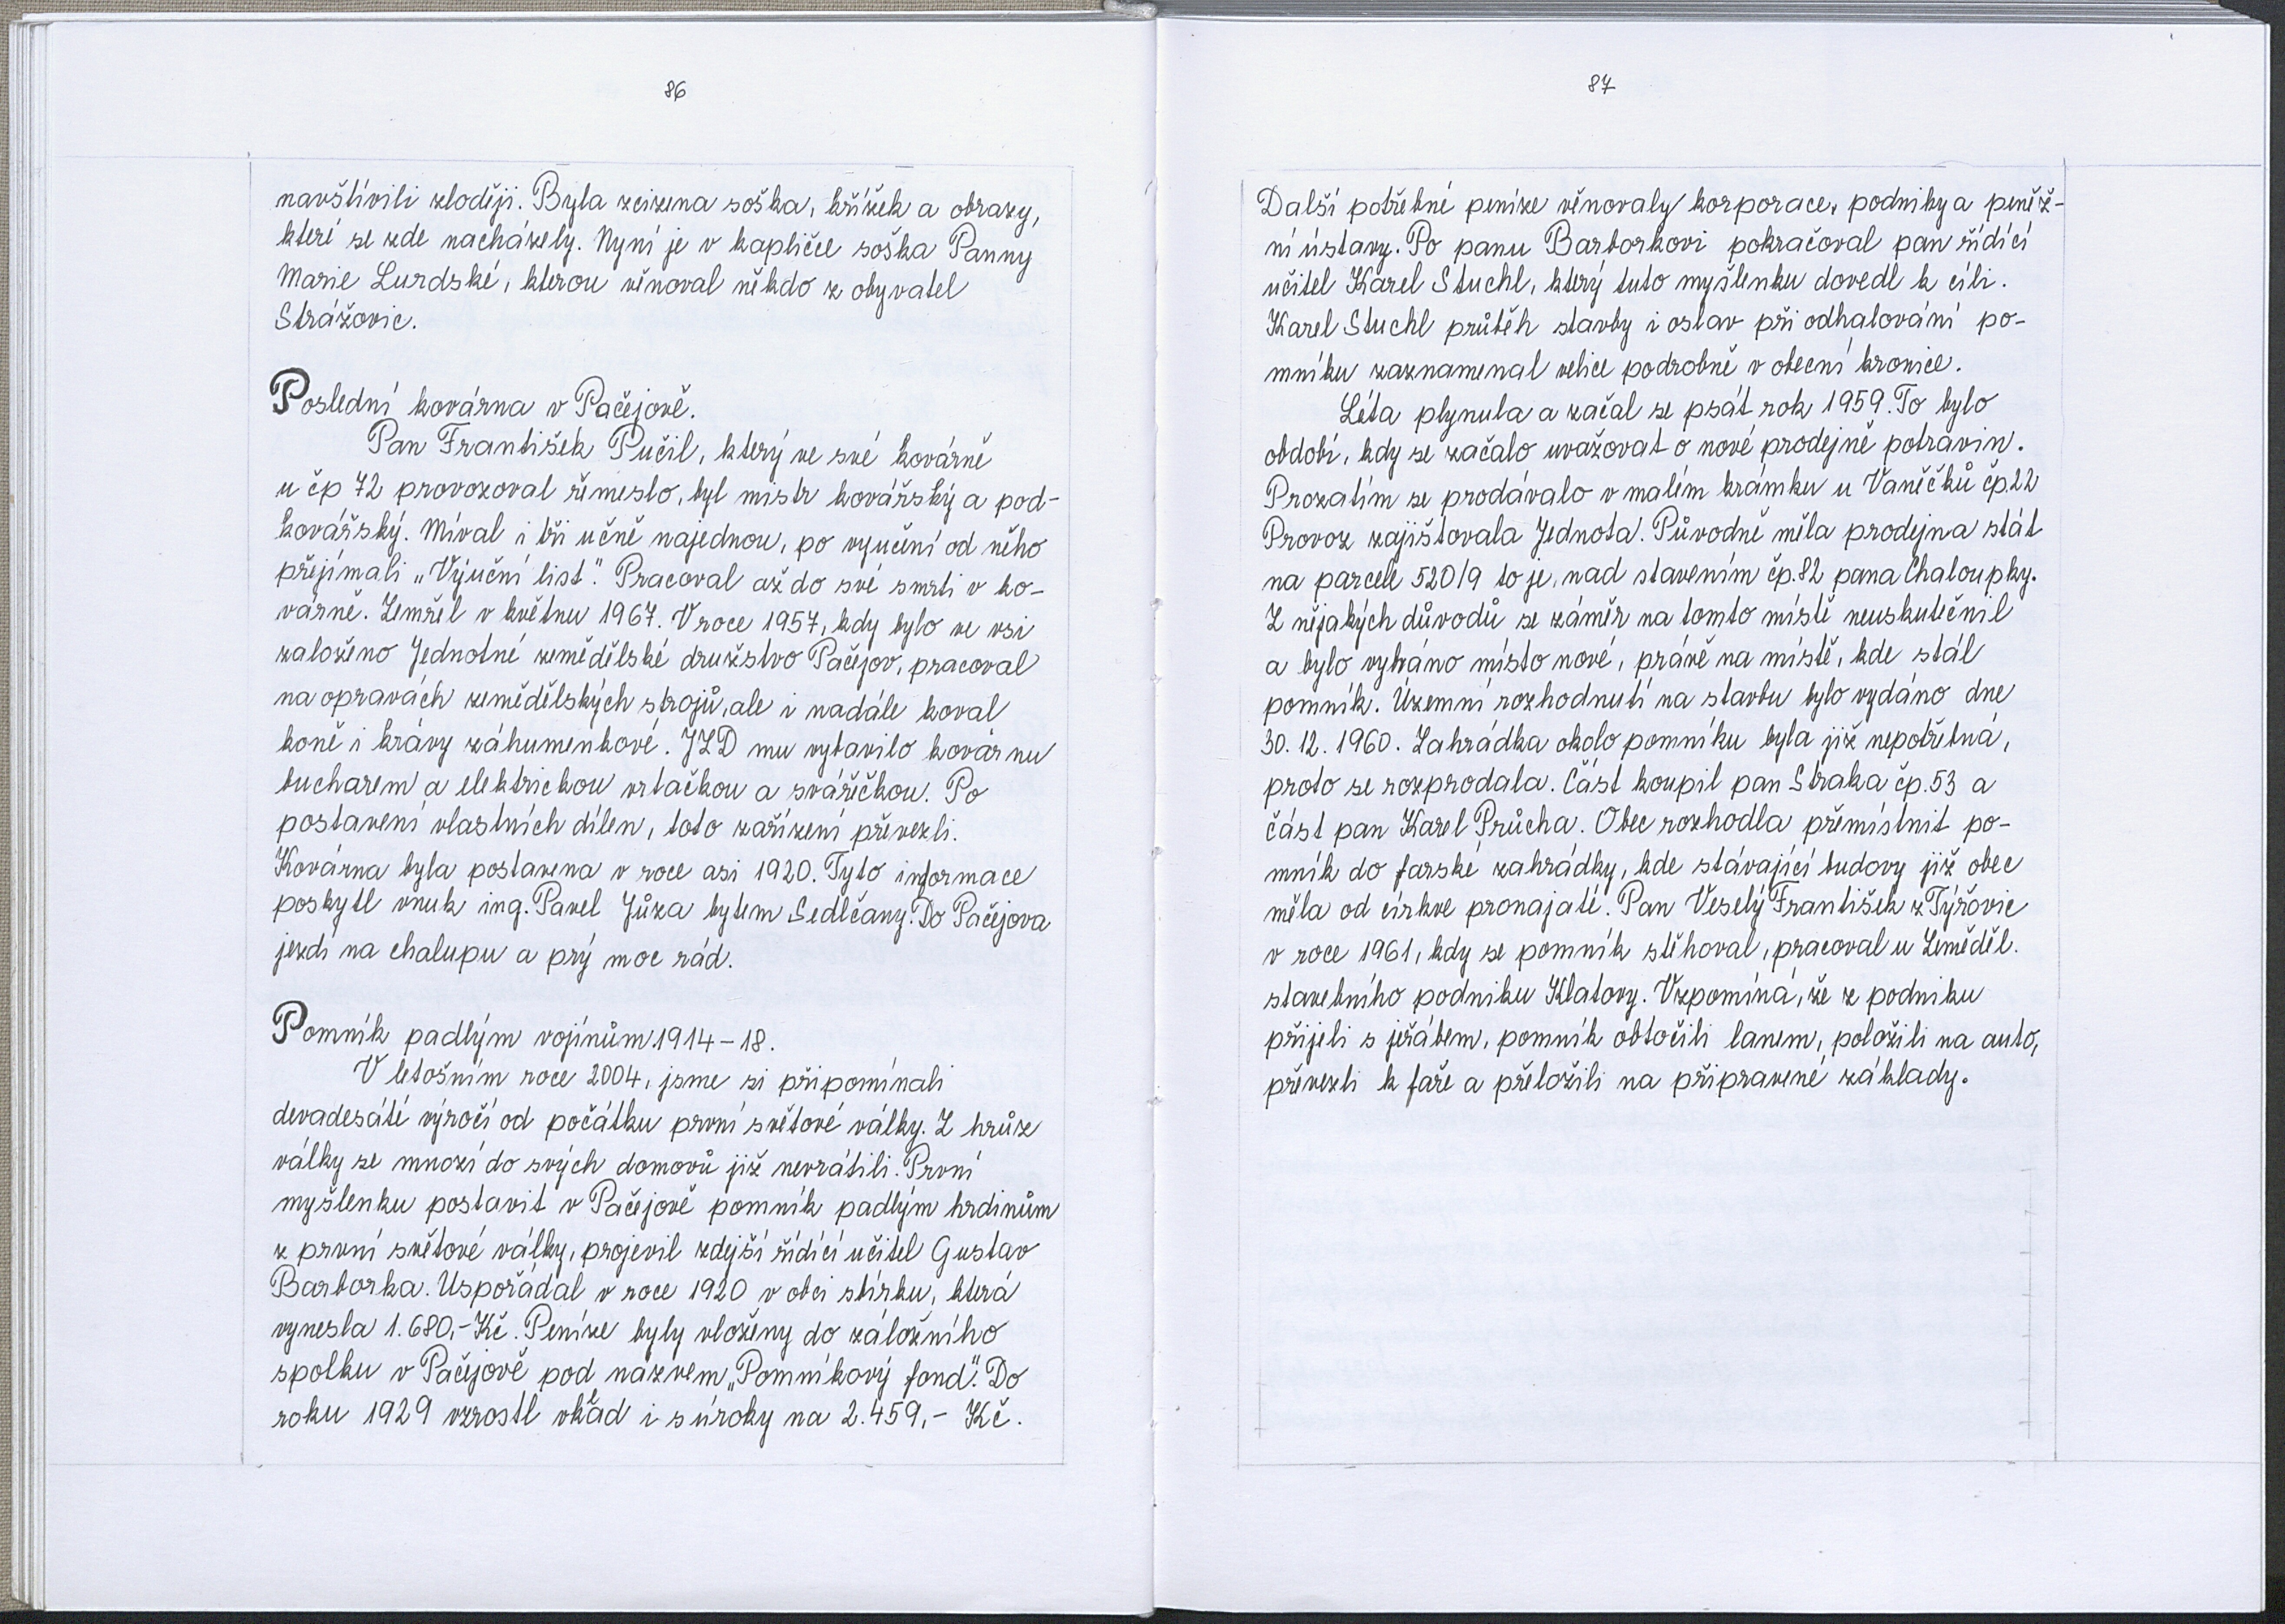 86
navštívili zloději. Byla zcizena soška, křížek a obrazy,
které se zde nacházely. Nyní je v kapličce soška Panny
Marie Lurdské, kterou věnoval někdo z obyvatel
Strážovic.
Poslední kovárna v Pačejově.
Pan František Pučil, který ve své kovárně
u čp 72 provozoval řemeslo, byl mistr kovářský a pod-
kovářský. Míval i tři učně najednou, po vyučení od něho
přejímali „Výuční list". Pracoval až do své smrti v ko-
várně. Zemřel v květnu 1967. V roce 1957, kdy bylo ve vsi
založeno Jednotné zemědělské družstvo Pačejov, pracoval
na opravách zemědělských strojů, ale i nadále koval
koně i krávy záhumenkové. JZD mu vybavilo kovárnu
bucharem a elektrickou vrtačkou a svářečkou. Po
postavení vlastních dílen, toto zařízení převezli.
Kovárna byla postavena v roce asi 1920. Tyto informace
poskytl vnuk ing. Pavel Jůza bytem Sedlčany. Do Pačejova
jezdí na chalupu a prý moc rád.
Pomník padlým vojínům 1914-18.
V letošním roce 2004, jsme si připomínali
devadesáté výročí od počátku první světové války. Z hrůz
války se mnozí do svých domovů již nevrátili. První
myšlenku postavit v Pačejově pomník padlým hrdinům
z první světové války, projevil zdejší řídící učitel Gustav
Barborka. Uspořádal v roce 1920 v obci sbírku, která
vynesla 1.680,- Kč. Peníze byly vloženy do záložního
spolku v Pačejově pod názvem „Pomníkový fond". Do
roku 1929 vzrostl vklad i s úroky na 2.459,- Kč.
87
Další potřebné peníze věnovaly korporace, podniky a peněž-
ní ústavy. Po panu Barborkovi pokračoval pan řídící
učitel Karel Stuchl, který tuto myšlenku dovedl k cíli.
Karel Stuchl průběh stavby i oslav při odhalování po-
mníku zaznamenal velice podrobně v obecní kronice.
Léta plynula a začal se psát rok 1959. To bylo
období, kdy se začalo uvažovat o nové prodejně potravin.
Prozatím se prodávalo v malém krámku u Vaněčků čp.22
Provoz zajišťovala Jednota. Původně měla prodejna stát
na parcele 520/9 to je, nad stavením čp.82 pana Chaloupky.
Z nějakých důvodů se záměr na tomto místě neuskutečnil
a bylo vybráno místo nové, právě na místě, kde stál
pomník. Územní rozhodnutí na stavbu bylo vydáno dne
30. 12. 1960. Zahrádka okolo pomníku byla již nepotřebná,
proto se rozprodala. Část koupil pan Straka čp.53 a
část pan Karel Průcha. Obec rozhodla přemístnit po-
mník do farské zahrádky, kde stávající budovy již obec
měla od církve pronajaté. Pan Veselý František z Týřovic
v roce 1961, kdy se pomník stěhoval, pracoval u Zeměděl.
stavebního podniku Klatovy. Vzpomíná, že z podniku
přijeli s jeřábem, pomník obtočili lanem, položili na auto,
převezli k faře a přeložili na připravené základy.